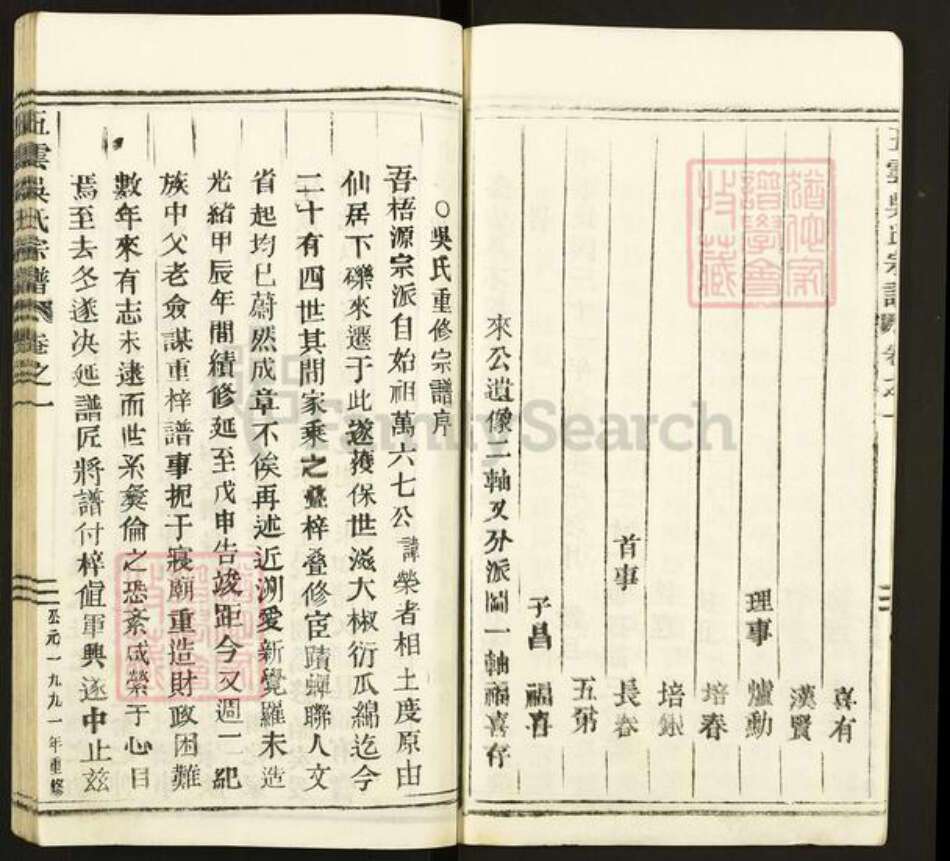 喜有
漢賢
理事 爐勳
培春
培錸
首事 長春
五弟
子昌 福春
來公遺像二軸又分派圖一軸福喜存
○吳氏重修宗譜序
吾梧源宗派自始祖萬六七公諱榮者相土度原由
仙居下礫來遷于此遂獲保世滋大椒衍瓜綿迄今
二十有四世其間家乘之叠梓叠修宦蹟蟬聯人文
省起均已蔚然成章不俟再述近溯愛新覺羅未造
光緒甲辰年間續修延至戊申告竣距今又週一紀
族中父老僉謀重梓譜事扼于寢廟重造財政困難
數年來有志未逮而世系彝倫之恐紊咸縈于心目
焉至去冬遂决延譜匠將譜付梓値軍興遂中止玆
五雲吳氏宗譜 卷之一
公元一九九一年重修
五雲吳氏宗譜 卷之一
譜學會
收藏
FamilySearch